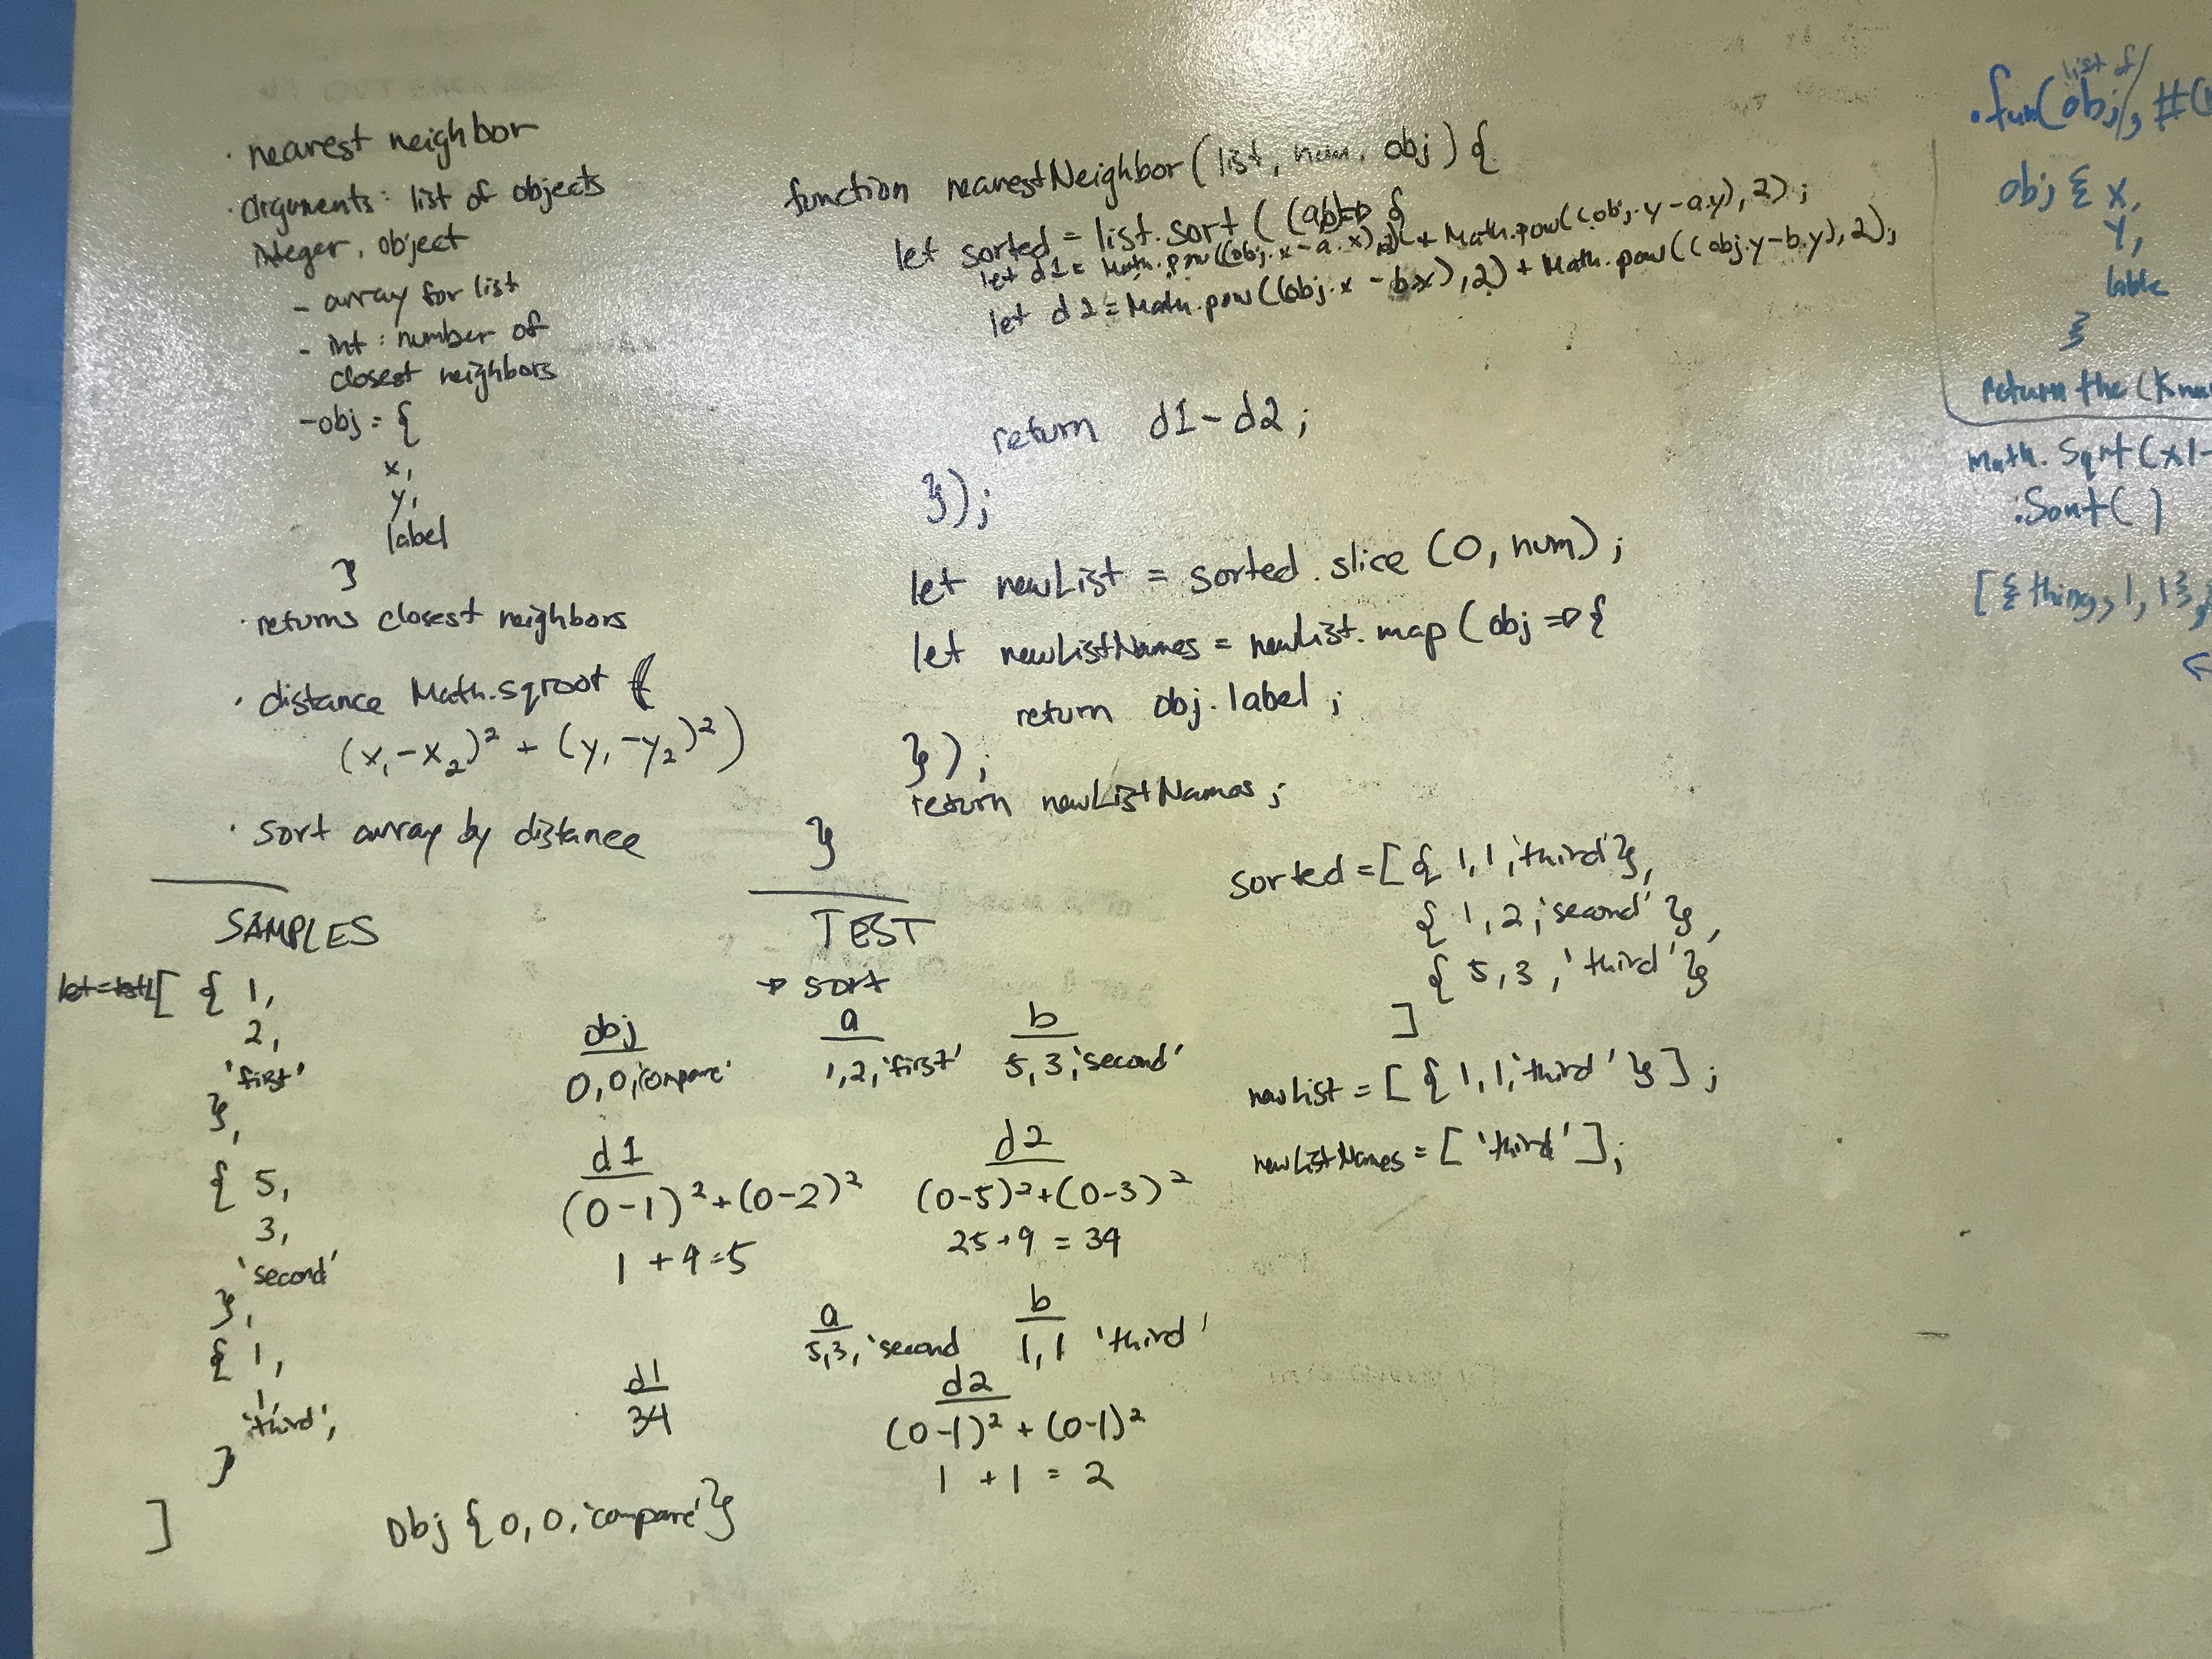 · nearest neighbor
· arguments: list of objects
integer, object
- array for list
- int: number of
closest neighbors
- obj = {
x,
y,
label
}
· returns closest neighbors
· distance Math.sqroot (
(x₁-x₂)² + (y₁-y₂)²)
· sort array by distance
function nearestNeighbor(list, num, obj) {
let sorted = list.sort((a,b)=> {
let d1 = Math.pow((obj.x-a.x),2) + Math.pow((obj.y-a.y),2);
let d2 = Math.pow((obj.x-b.x),2) + Math.pow((obj.y-b.y),2);
return d1-d2;
});
let newList = sorted.slice(0, num);
let newListNames = newList.map(obj => {
return obj.label;
});
return newListNames;
}
SAMPLES
[ { 1,
2,
'first'
},
{ 5,
3,
'second'
},
{ 1,
1,
'third',
}
]
Obj { 0, 0, 'compare' }
TEST
→ sort
obj a b
0,0,'compare' 1,2,'first' 5,3,'second'
d1 d2
(0-1)²+(0-2)² (0-5)²+(0-3)²
1 + 4 = 5 25+9 = 34
a b
5,3,'second 1,1 'third'
d1 d2
34 (0-1)² + (0-1)²
1 + 1 = 2
sorted = [ { 1,1,'third' },
{ 1,2,'second' },
{ 5,3,'third' }
]
newList = [ { 1,1,'third' } ];
newListNames = [ 'third' ];
list of
· fun(obj, #(
obj { x,
y,
lable
}
return the (K
Math.Sqrt(x1-
.Sort( )
[ { thing, 1, 1 },